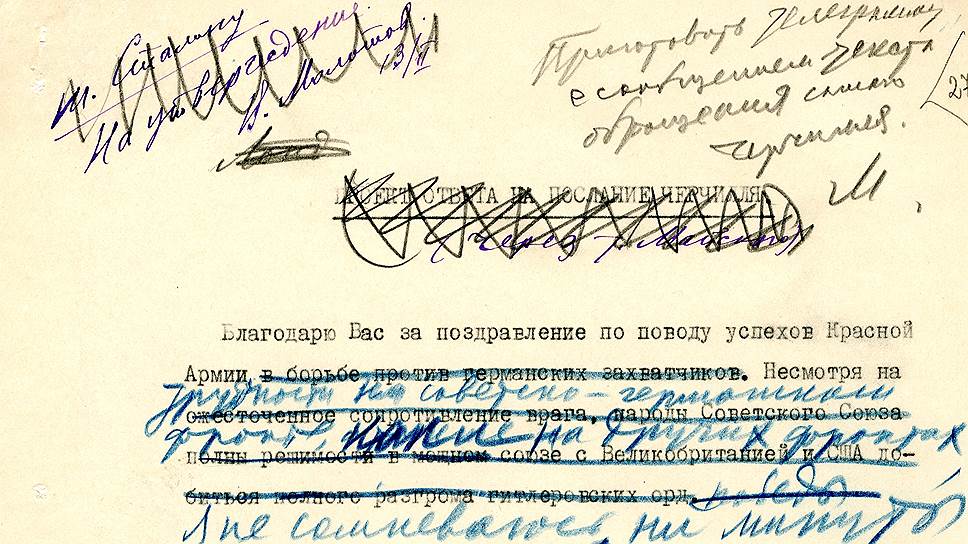 т. Сталину
На утверждение.
В. Молотов
13/II
Приготовить телеграмму
с сообщением текста
обращения самого
Черчилля.
М.
27
ПРОЕКТ ОТВЕТА НА ПОСЛАНИЕ ЧЕРЧИЛЛЯ
(через т. Майского)
Благодарю Вас за поздравление по поводу успехов Красной
Армии в борьбе против германских захватчиков. Несмотря на
трудности на советско-германском
ожесточенное сопротивление врага, народы Советского Союза
фронте, на других фронтах
полны решимости в мощном союзе с Великобританией и США до-
биться полного разгрома гитлеровских орд. победы
Я не сомневаюсь ни минуты